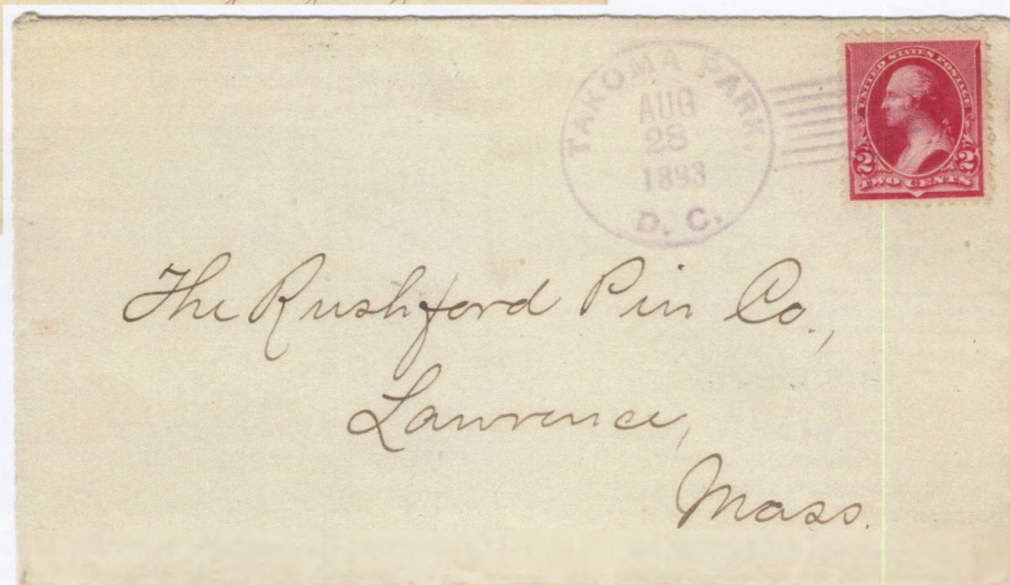 TAKOMA PARK,
AUG
28
1893
D. C.
UNITED STATES POSTAGE
2 2
TWO CENTS
The Rushford Pin Co.,
Lawrence,
Mass.